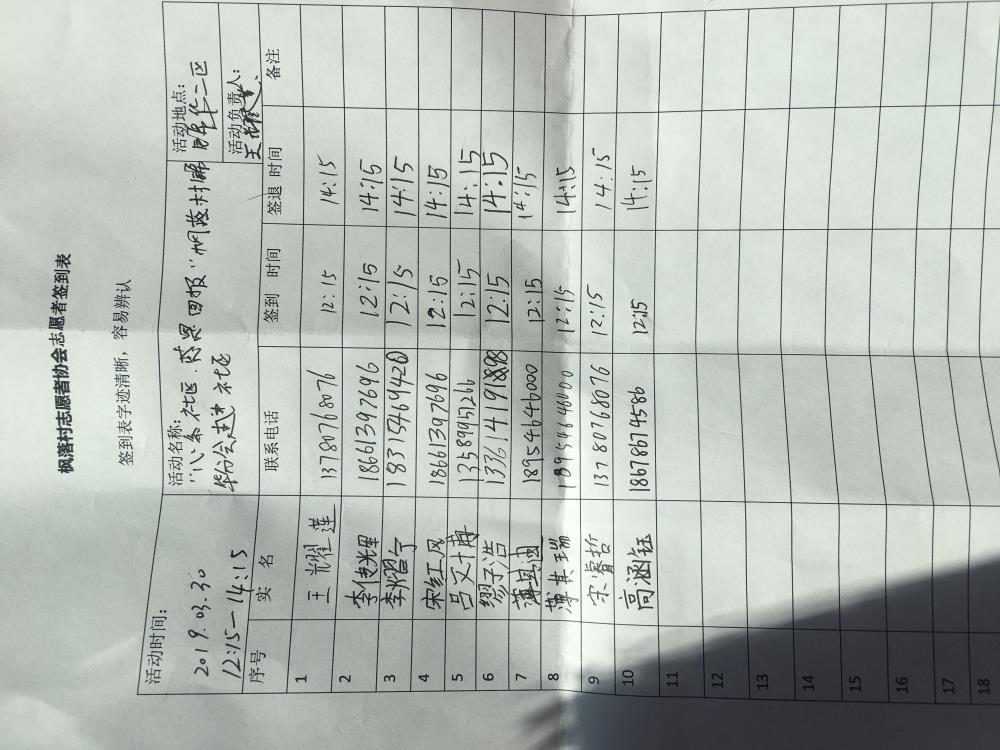 枫落村志愿者协会志愿者签到表
签到表字迹清晰，容易辨认
活动时间：
2019.03.30
12:15—14:15
活动名称：
社区
社区
活动地点：
二区
活动负责人：
王耀莲
序号 实 名 联系电话 签到 时间 签退 时间 备注
1 王耀莲 13780768076 12:15 14:15
2 李 18661397696 12:15 14:15
3 李熠宁 18315469420 12:15 14:15
4 宋红风 18661397696 12:15 14:15
5 吕 13589951266 12:15 14:15
6 缪子浩 12:15 14:15
7 薄 18954646000 12:15 14:15
8 薄其瑞 18954646000 12:15 14:15
9 宋睿哲 13780768076 12:15 14:15
10 高涵钰 18678674586 12:15 14:15
11
12
13
14
15
16
17
18